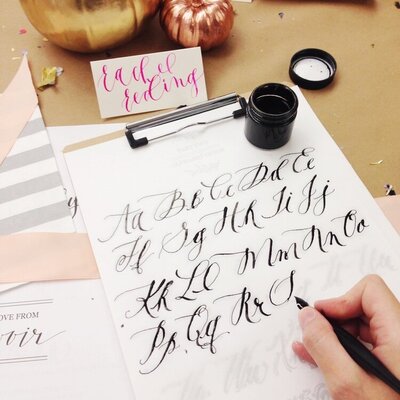 Rachel
Reading
Aa Bb Cc Dd Ee
Ff Gg Hh Ii Jj
Kk Ll Mm Nn Oo
Pp Qq Rr S
OVE FROM
oir